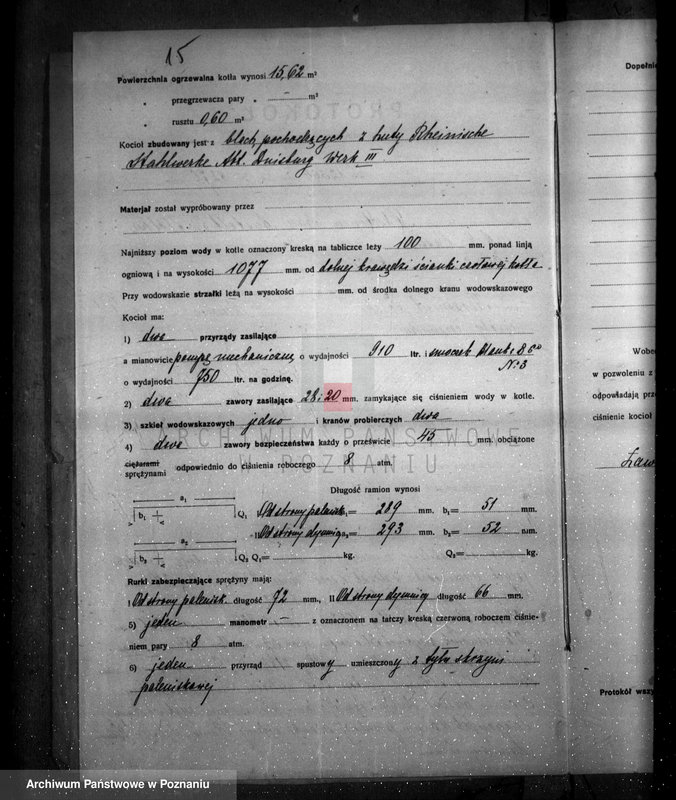 15
Powierzchnia ogrzewalna kotła wynosi 15,62 m²
„ przegrzewacza pary „ — m²
„ rusztu 0,60 m²
Kocioł zbudowany jest z blach pochodzących z huty Rheinische
Stahlwerke Abt. Duisburg Werk III
Materjał został wypróbowany przez
Najniższy poziom wody w kotle oznaczony kreską na tabliczce leży 100 mm. ponad linją
ogniową i na wysokości 1077 mm. od dolnej krawędzi ścianki czołowej kotła
Przy wodowskazie strzałki leżą na wysokości mm. od środka dolnego kranu wodowskazowego
Kocioł ma:
1) dwa przyrządy zasilające
a mianowicie pompę mechaniczną o wydajności 910 ltr. i smoczek
No 3
o wydajności 750 ltr. na godzinę.
2) dwa zawory zasilające 28 i 20 mm. zamykające się ciśnieniem wody w kotle.
3) szkieł wodowskazowych jedno i kranów probierczych dwa
4) dwa zawory bezpieczeństwa każdy o prześwicie 45 mm. obciążone
ciężarami
sprężynami odpowiednio do ciśnienia roboczego 8 atm.
Długość ramion wynosi
a₁ b₁ Q₁ Od strony palenisk = 289 mm. b₁= 51 mm.
a₂ b₂ Od strony dymnicy a₂= 293 mm. b₂= 52 mm.
Q₂ Q₁= kg. Q₂= kg.
Rurki zabezpieczające sprężyny mają:
I Od strony palenisk długość 72 mm., II Od strony dymnicy długość 66 mm.
5) jeden manometr — z oznaczonem na tarczy kreską czerwoną roboczem ciśnie-
niem pary 8 atm.
6) jeden przyrząd spustowy umieszczony z tyłu skrzyni
paleniskowej
Dopełnie
Wobec
w pozwoleniu z
odpowiadają prze
ciśnienie kocioł
Protokół wszy
ARCHIWUM PAŃSTWOWE
W POZNANIU
Archiwum Państwowe w Poznaniu